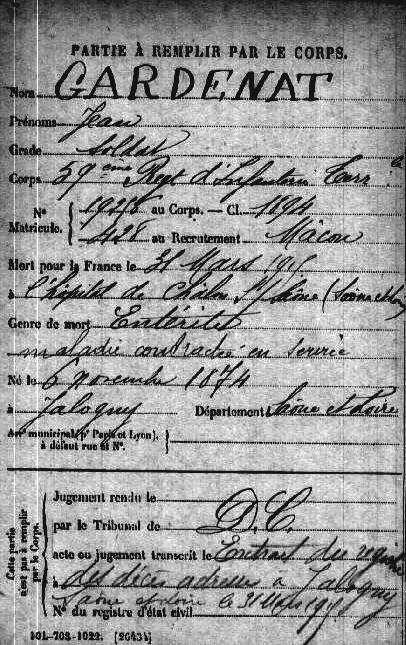 PARTIE À REMPLIR PAR LE CORPS.
Nom GARDENAT
Prénoms Jean
Grade Soldat
Corps 59ème Regt d'Infanterie Terr le
N° Matricule. 1928 au Corps. — Cl. 1894
428 au Recrutement Mâcon
Mort pour la France le 31 Mars 1915
à l'hôpital de Châlon s/Saône (Saône et Loire)
Genre de mort Entérite
maladie contractée en service
Né le 6 novembre 1874
à Jalogny Département Saône et Loire
Arr municipal (pr Paris et Lyon), à défaut rue et N°.
Cette partie n'est pas à remplir par le Corps.
Jugement rendu le
par le Tribunal de D.C.
acte ou jugement transcrit le Extrait du registre
à des décès adressé à Jalogny
Saône et Loire le 31 Mars 1915
N° du registre d'état civil
101-708-1922. [26434]